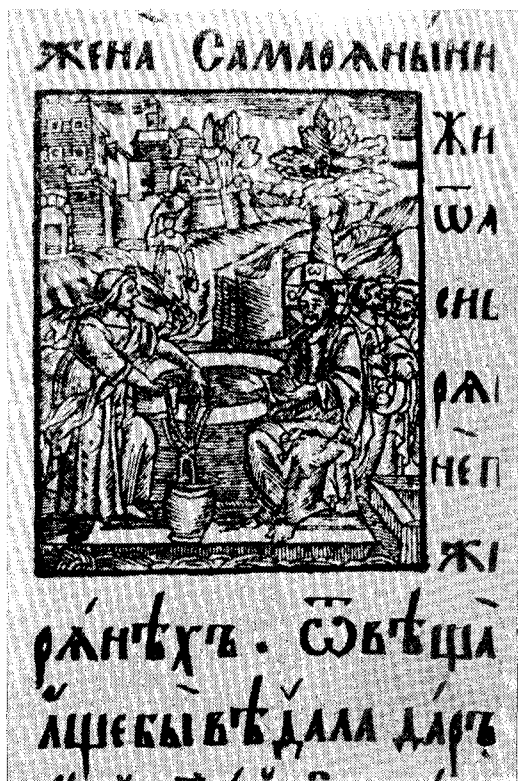 жена̀ Самарѧны́ни
Жи
ѿ а
рѧ
нѐп
рѧ́нѣхъ . Ѿвѣща̀
а҆́щебы̀ вѣ́дала да́ръ